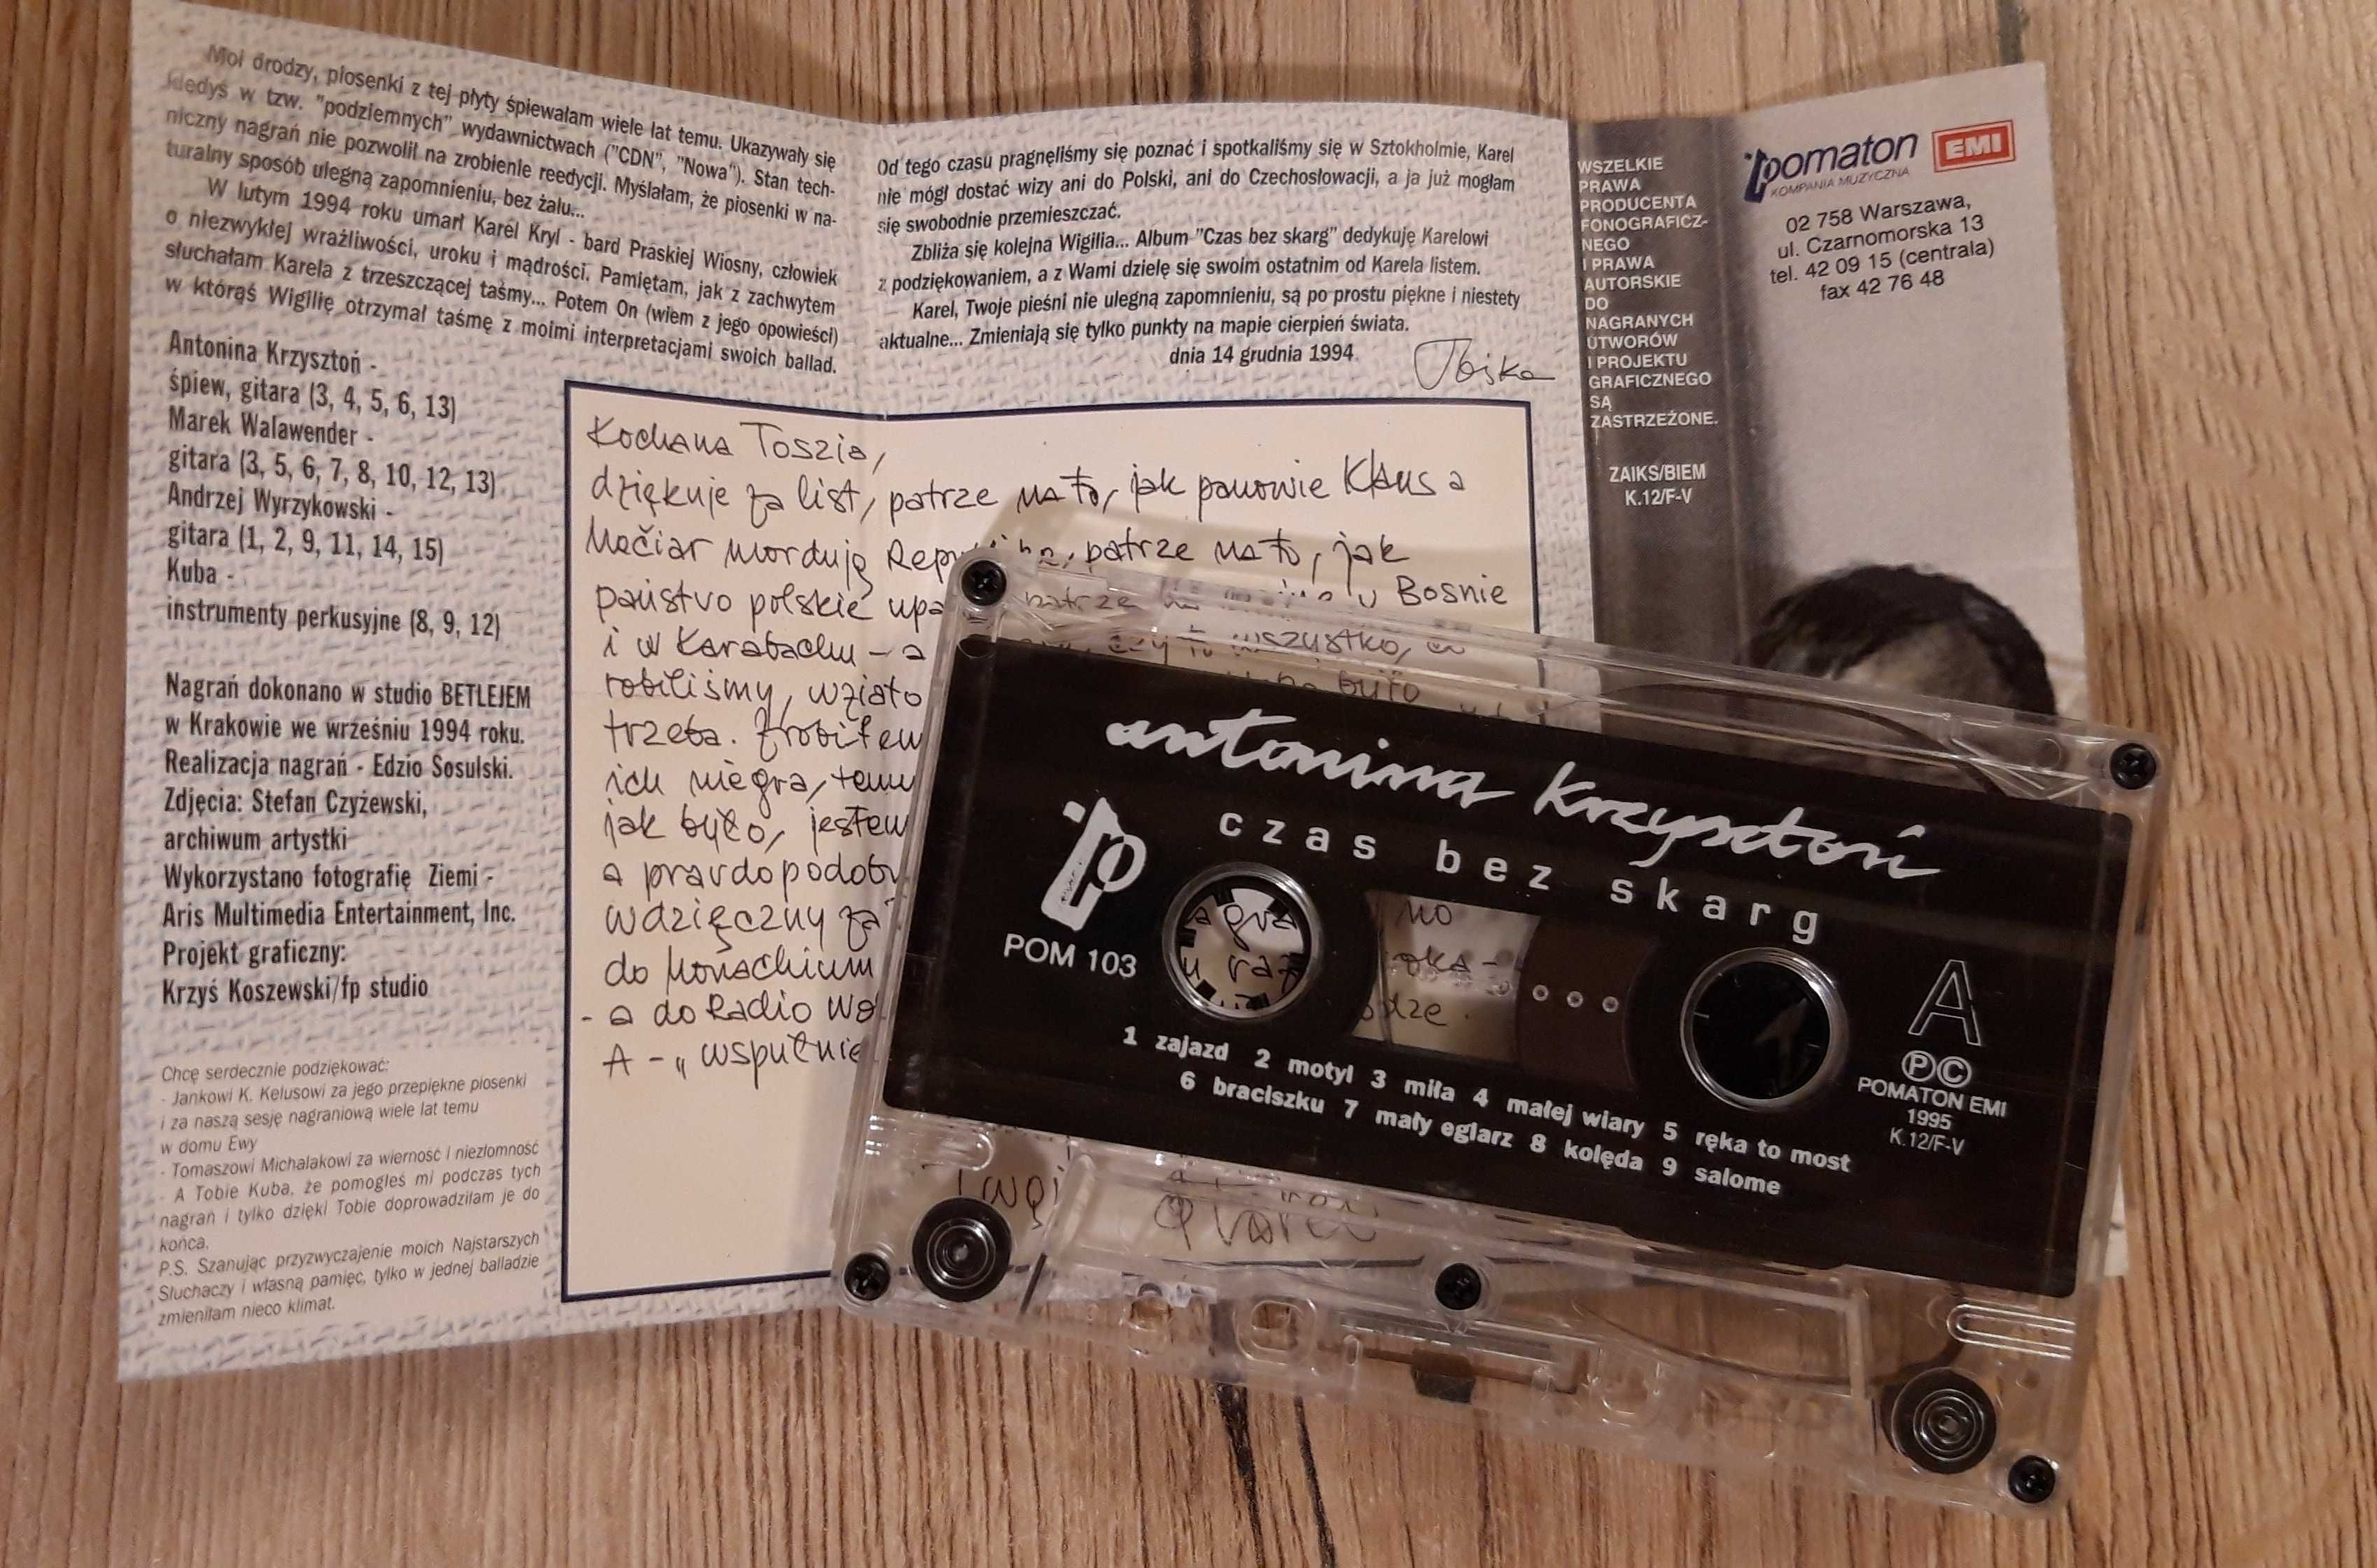 Moi drodzy, piosenki z tej płyty śpiewałam wiele lat temu. Ukazywały się
kiedyś w tzw. "podziemnych" wydawnictwach ("CDN", "Nowa"). Stan tech-
niczny nagrań nie pozwolił na zrobienie reedycji. Myślałam, że piosenki w na-
turalny sposób ulegną zapomnieniu, bez żalu...
W lutym 1994 roku umarł Karel Kryl - bard Praskiej Wiosny, człowiek
o niezwykłej wrażliwości, uroku i mądrości. Pamiętam, jak z zachwytem
słuchałam Karela z trzeszczącej taśmy... Potem On (wiem z jego opowieści)
w którąś Wigilię otrzymał taśmę z moimi interpretacjami swoich ballad.
Antonina Krzysztoń -
śpiew, gitara (3, 4, 5, 6, 13)
Marek Walawender -
gitara (3, 5, 6, 7, 8, 10, 12, 13)
Andrzej Wyrzykowski -
gitara (1, 2, 9, 11, 14, 15)
Kuba -
instrumenty perkusyjne (8, 9, 12)
Nagrań dokonano w studio BETLEJEM
w Krakowie we wrześniu 1994 roku.
Realizacja nagrań - Edzio Sosulski.
Zdjęcia: Stefan Czyżewski,
archiwum artystki
Wykorzystano fotografię Ziemi -
Aris Multimedia Entertainment, Inc.
Projekt graficzny:
Krzyś Koszewski/fp studio
Chcę serdecznie podziękować:
- Jankowi K. Kelusowi za jego przepiękne piosenki
i za naszą sesję nagraniową wiele lat temu
w domu Ewy
- Tomaszowi Michalakowi za wierność i niezłomność
- A Tobie Kuba, że pomogłeś mi podczas tych
nagrań i tylko dzięki Tobie doprowadziłam je do
końca.
P.S. Szanując przyzwyczajenie moich Najstarszych
Słuchaczy i własną pamięć, tylko w jednej balladzie
zmieniłam nieco klimat.
Od tego czasu pragnęliśmy się poznać i spotkaliśmy się w Sztokholmie, Karel
nie mógł dostać wizy ani do Polski, ani do Czechosłowacji, a ja już mogłam
się swobodnie przemieszczać.
Zbliża się kolejna Wigilia... Album "Czas bez skarg" dedykuję Karelowi
z podziękowaniem, a z Wami dzielę się swoim ostatnim od Karela listem.
Karel, Twoje pieśni nie ulegną zapomnieniu, są po prostu piękne i niestety
aktualne... Zmieniają się tylko punkty na mapie cierpień świata.
dnia 14 grudnia 1994
Tośka
Kochana Toszia,
dziękuje za list, patrze na to, jak panowie Klaus a
Mečiar mordują patrze na to, jak
państvo polskie Bosnie
i w Karabachu - a wszystko,
robiliśmy, było
trzeba. zrobiłem
ich niegra,
jak było, jestem
a
wdzięczny za
do Monachium
- a do Radio
A - "
WSZELKIE
PRAWA
PRODUCENTA
FONOGRAFICZ-
NEGO
I PRAWA
AUTORSKIE
DO
NAGRANYCH
UTWORÓW
I PROJEKTU
GRAFICZNEGO
SĄ
ZASTRZEŻONE.
ZAIKS/BIEM
K.12/F-V
pomaton EMI
KOMPANIA MUZYCZNA
02 758 Warszawa,
ul. Czarnomorska 13
tel. 42 09 15 (centrala)
fax 42 76 48
antonina krzysztoń
czas bez skarg
POM 103
A
PC
POMATON EMI
1995
K.12/F-V
1 zajazd 2 motyl 3 miła 4 małej wiary 5 ręka to most
6 braciszku 7 mały eglarz 8 kolęda 9 salome